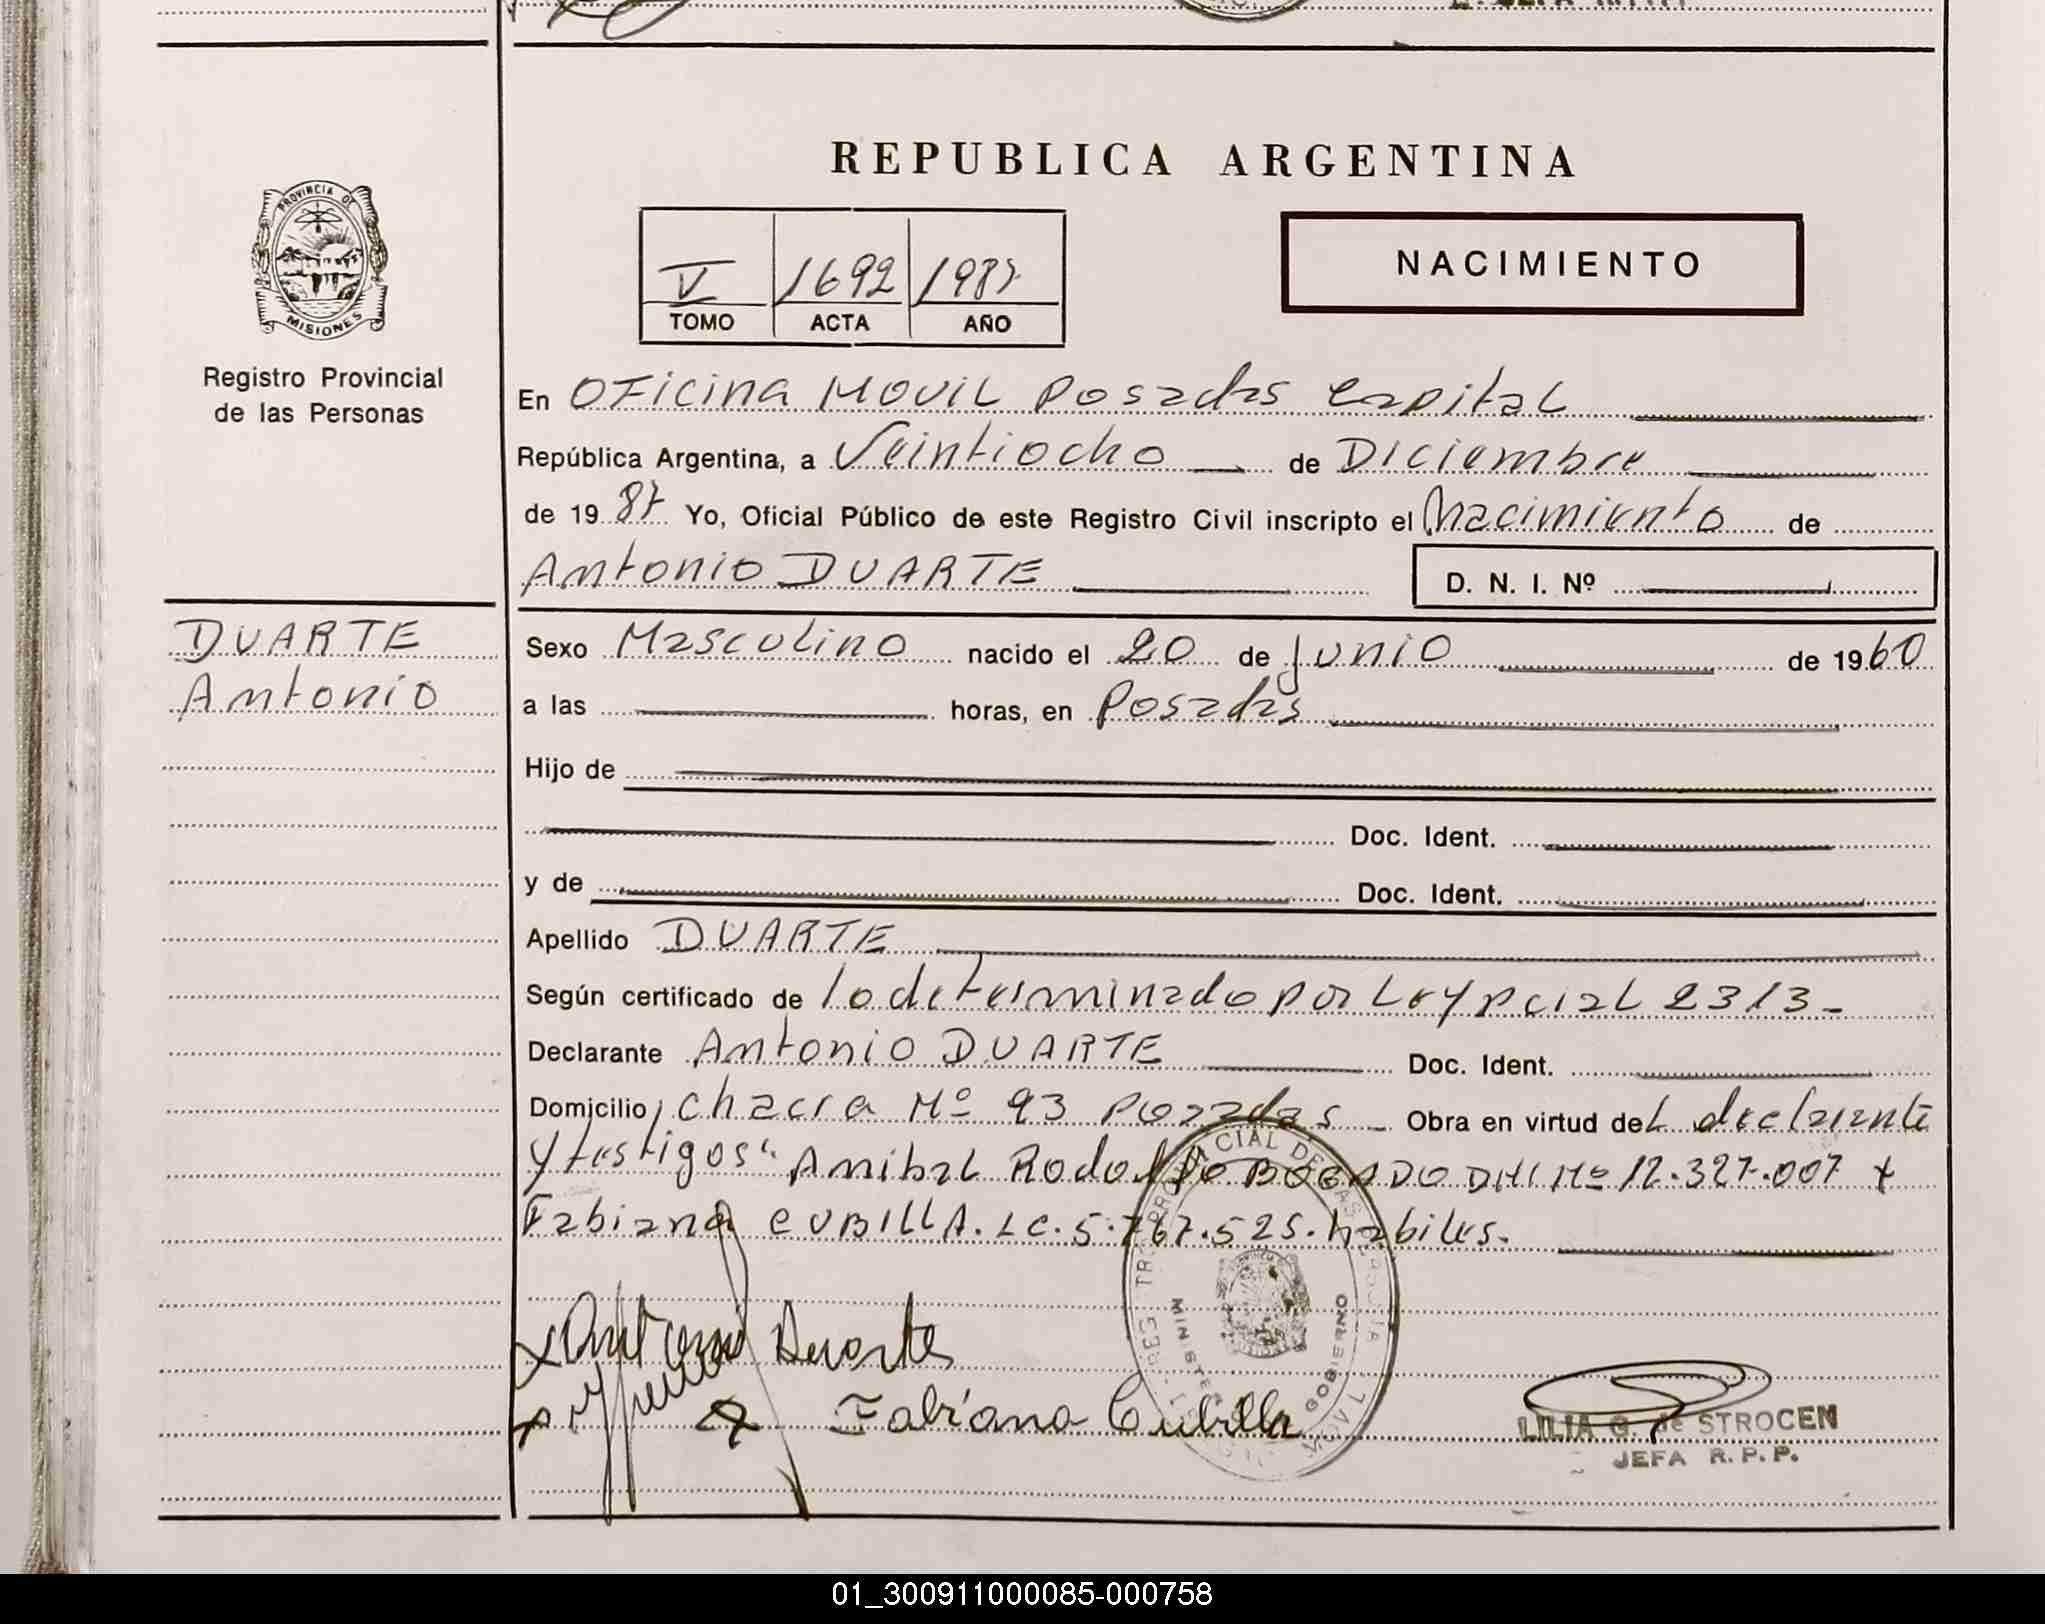 REPUBLICA ARGENTINA
PROVINCIA DE
MISIONES
Registro Provincial
de las Personas
V 1692 1987
TOMO ACTA AÑO
NACIMIENTO
En OFicina MOVIL Posadas capital
República Argentina, a Veintiocho de Diciembre
de 1987 Yo, Oficial Público de este Registro Civil inscripto el Nacimiento de
Antonio DUARTE D. N. I. Nº
DUARTE
Antonio
Sexo Masculino nacido el 20 de Junio de 1960
a las horas, en Posadas
Hijo de
Doc. Ident.
y de Doc. Ident.
Apellido DUARTE
Según certificado de lo determinado por Ley pcial 2313-
Declarante Antonio DUARTE Doc. Ident.
Domicilio chacra Nº 93 Posadas - Obra en virtud del declarante
y testigos: Anibal Rodolfo BOGADO DNI Nº 12.327.007 y
Fabiana CUBILLA. LC. 5.767.525. habiles.
x Antonio Duarte
x Fabiana Cubilla
MINISTERIO GOBIERNO
LILIA G. de STROCEN
JEFA R. P. P.
01_300911000085-000758